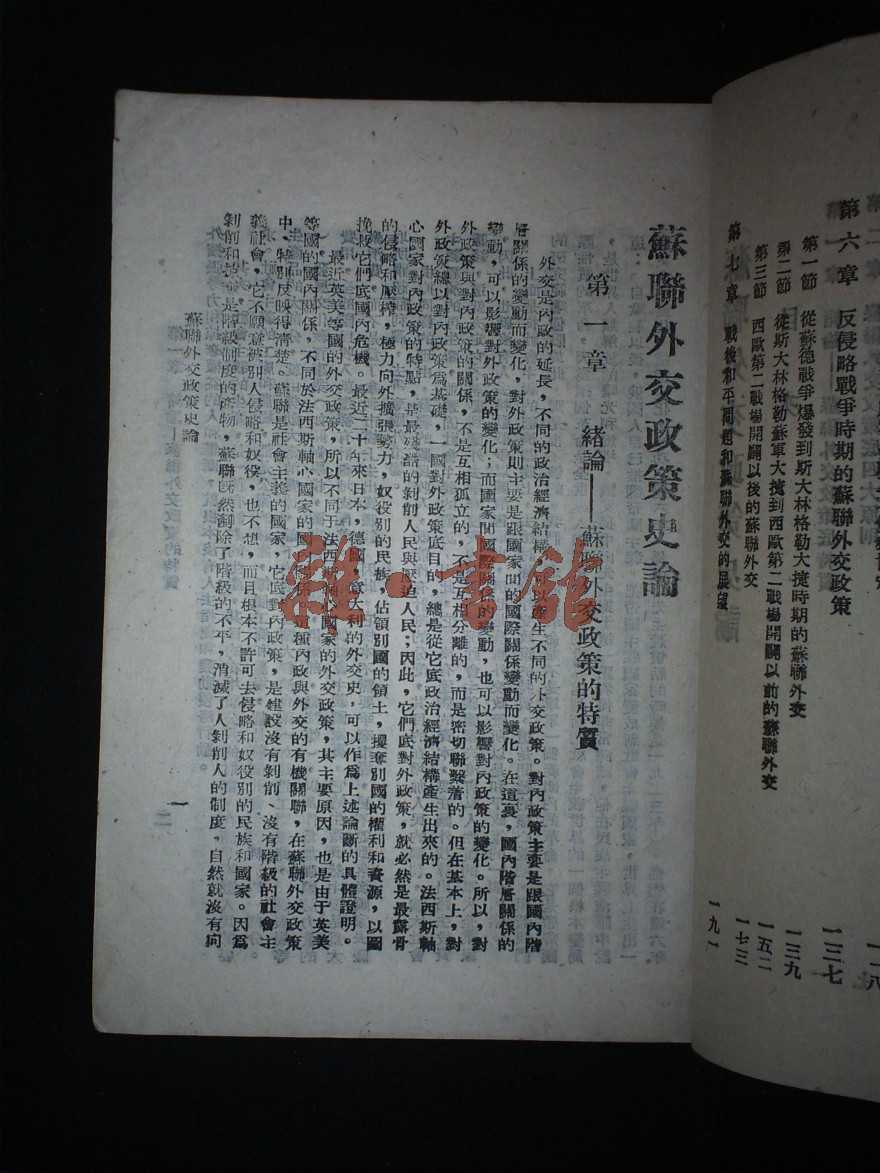 第六章 反侵略戰爭時期的蘇聯外交政策
一三七
第一節 從蘇德戰爭爆發到斯大林格勒大捷時期的蘇聯外交
一三九
第二節 從斯大林格勒蘇軍大捷到西歐第二戰場開闢以前的蘇聯外交
一五二
第三節 西歐第二戰場開闢以後的蘇聯外交
一七三
第七章 戰後和平問題和蘇聯外交的展望
一九一
蘇聯外交政策史論
第一章 緒論——蘇聯外交政策的特質
外交是內政的延長，不同的政治經濟結構，可以產生不同的外交政策。對內政策主要是跟國內階
層關係的變動而變化，對外政策則主要是跟國家間的國際關係變動而變化。在這裏，國內階層關係的
變動，可以影響對外政策的變化；而國家間國際關係的變動，也可以影響對內政策的變化。所以，對
外政策與對內政策的關係，不是互相孤立的，不是互相分離的，而是密切聯繫着的。但在基本上，對
外政策總以對內政策爲基礎，一國對外政策底目的，總是從它底政治經濟結構產生出來的。法西斯軸
心國家對內政策的特點，是最殘酷的剝削人民與壓迫人民；因此，它們底對外政策，就必然是最露骨
的侵略和壓榨，極力向外擴張勢力，奴役別的民族，佔領別國的領土，攫奪別國的權利和資源，以圖
挽救它們底國內危機。最近二十年來日本，德國，意大利的外交史，可以作爲上述論斷的具體證明。
最近英美等國的外交政策，所以不同于法西斯軸心國家的外交政策，其主要原因，也是由于英美
等國的國內關係，不同於法西斯軸心國家的國內關係。這種內政與外交的有機關聯，在蘇聯外交政策
中，特別反映得清楚。蘇聯是社會主義的國家，它底對內政策，是建設沒有剝削、沒有階級的社會主
義社會，它不願意被別人侵略和奴役，也不想，而且根本不許可去侵略和奴役別的民族和國家。因爲
剝削和掠奪是階級制度的產物，蘇聯既然剷除了階級的不平，消滅了人剝削人的制度，自然就沒有向
蘇聯外交政策史論
一
雜·書館